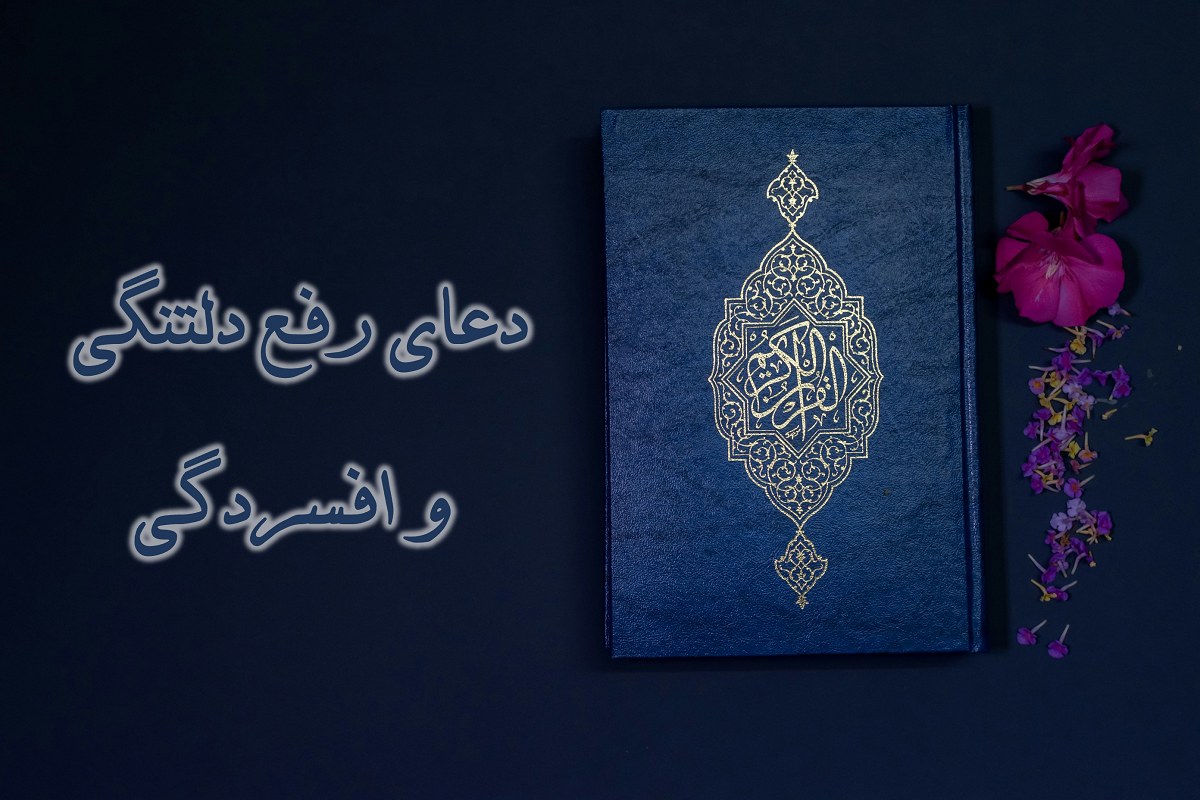 دعای رفع دلتنگی
و افسردگی
القرآن الكريم